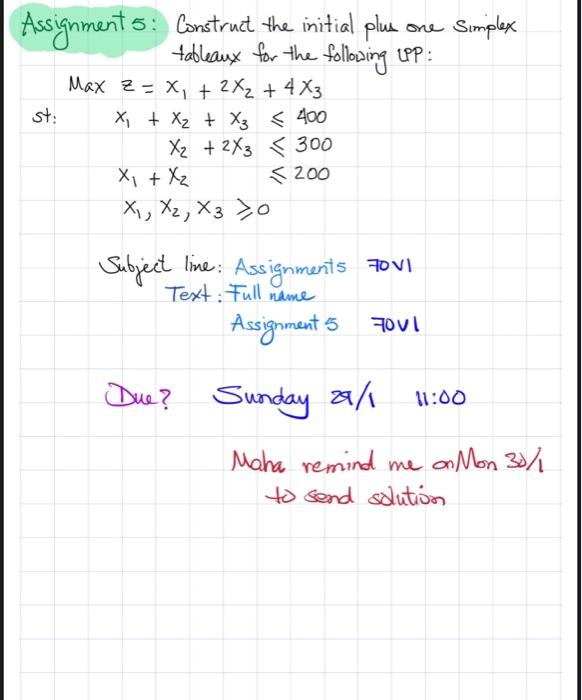 Assignment 5: Construct the initial plus one simplex
tableaux for the following LPP:
Max Z = X₁ + 2X₂ + 4X₃
st: X₁ + X₂ + X₃ ≤ 400
X₂ + 2X₃ ≤ 300
X₁ + X₂ ≤ 200
X₁, X₂, X₃ ≥ 0
Subject line: Assignment 5 70V1
Text: Full name
Assignment 5 70V1
Due? Sunday 29/1 11:00
Maha remind me on Mon 30/1
to send solution